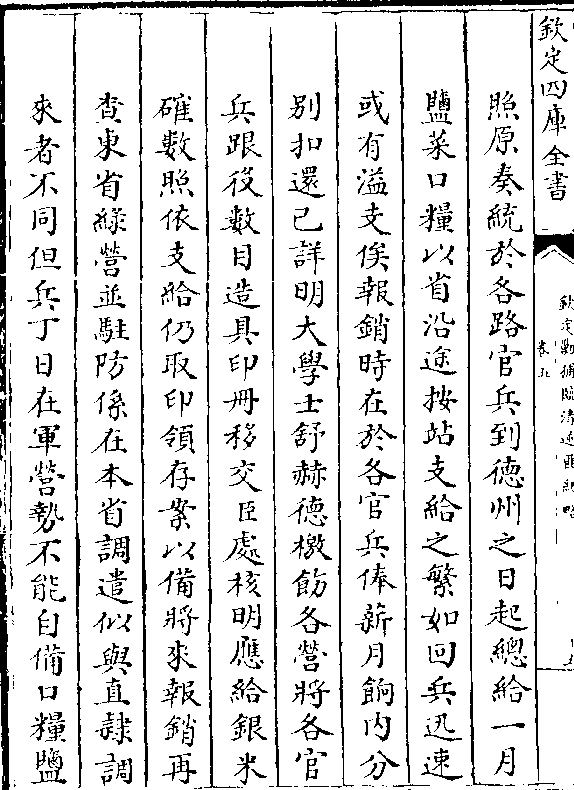 欽定四庫全書
欽定勦捕臨清逆匪紀略
卷五
照原奏統於各路官兵到德州之日起總給一月
鹽菜口糧以省沿途按站支給之繁如回兵迅速
或有溢支俟報銷時在於各官兵俸薪月餉内分
别扣還已詳明大學士舒赫德檄飭各營將各官
兵跟役數目造具印冊移交臣處核明應給銀米
確數照依支給仍取印領存案以備將來報銷再
查東省綠營並駐防係在本省調遣似與直隷調
來者不同但兵丁日在軍營勢不能自備口糧鹽